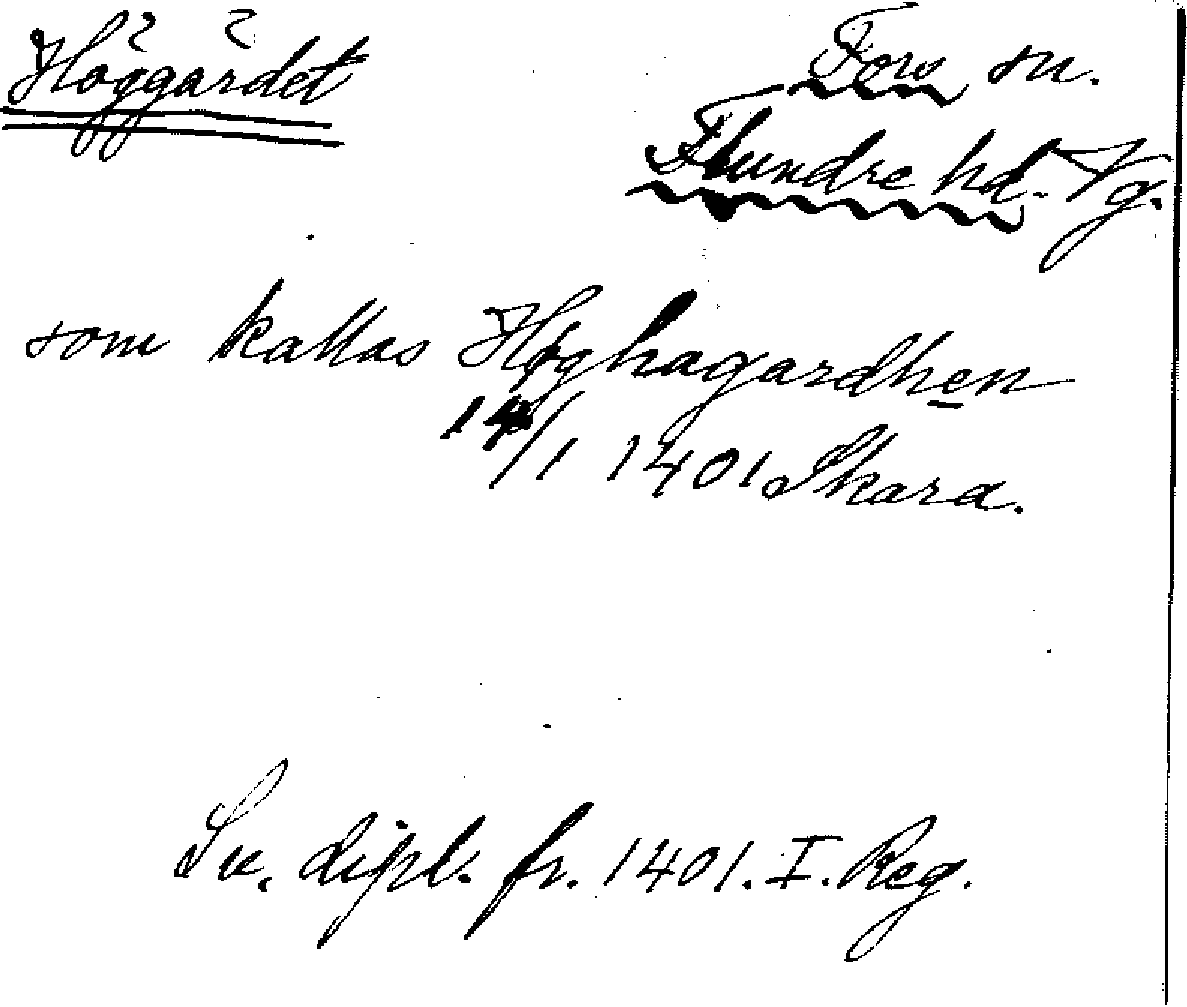 Höggärdet
Fors sn.
Flundre hd. Vg.
som kallas Høghagardhen
14/1 1401 Skara.
Sv. dipl. fr. 1401. I. Reg.